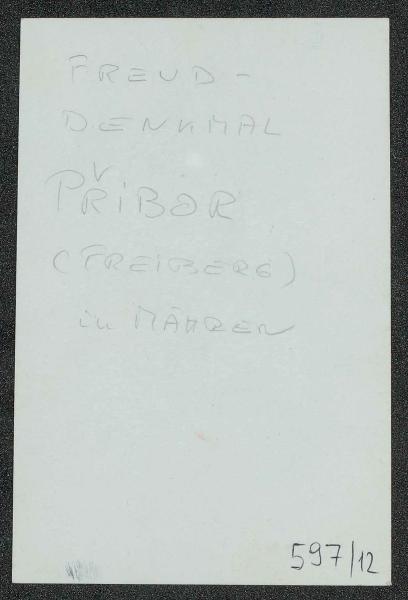 FREUD -
DENKMAL
PŘIBOR
(FREIBERG)
in MÄHREN
597/12